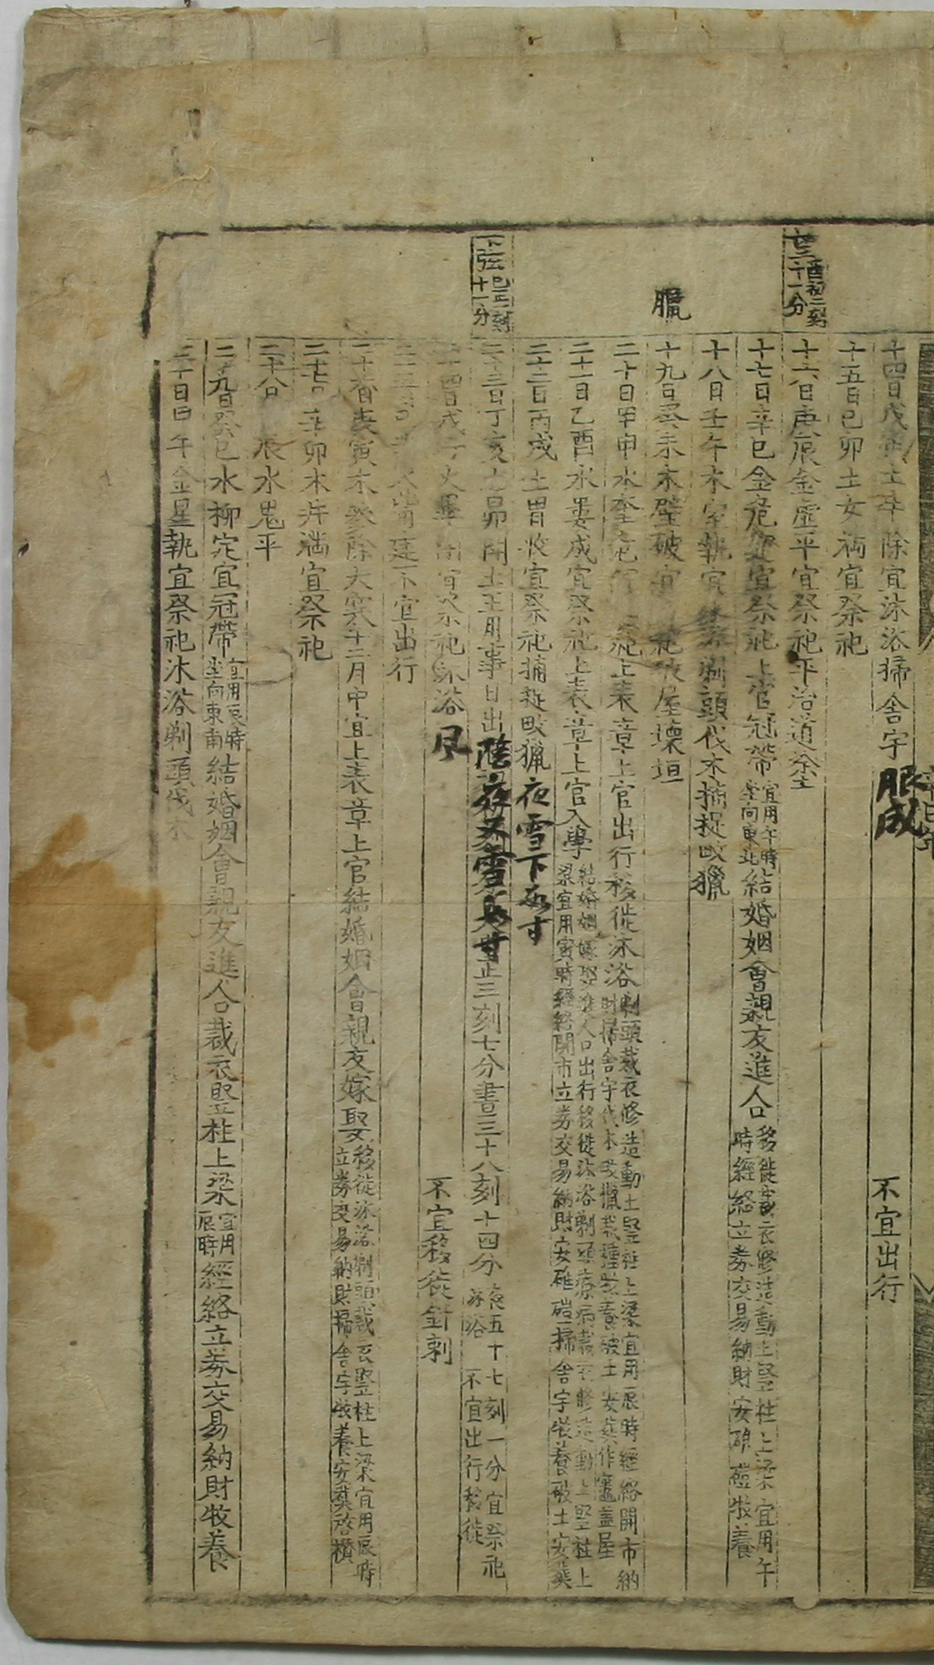 十四日戊寅土牛除宜沐浴掃舍宇 服成 不宜出行
十五日己卯土女滿宜祭祀
十六日庚辰金虛平宜祭祀平治道塗
十七日辛巳金危定宜祭祀上官冠帶宜用午時坐向東北結婚姻會親友進人口移徙裁衣修造動土竪柱上梁宜用午時經絡立券交易納財安碓磑牧養
十八日壬午木室執宜 剃頭伐木捕捉畋獵
臘
十九日癸未木壁破宜 祀破屋壞垣
二十日甲申水奎危宜 祀上表章上官出行移徙沐浴剃頭裁衣修造動土竪柱上梁宜用辰時經絡開市納財掃舍宇伐木畋獵栽種牧養破土安葬作竈蓋屋
二十一日乙酉水婁成宜祭祀上表章上官入學結婚姻嫁娶進人口出行移徙沐浴剃頭療病裁衣修造動土竪柱上梁宜用寅時經絡開市立券交易納財安碓磑掃舍宇牧養破土安葬
二十二日丙戌土胃收宜祭祀捕捉畋獵 夜雪下
下弦巳正 刻十一分
二十三日丁亥土昴開土王用事日出 正三刻七分晝三十八刻十四分夜五十七刻一分宜祭祀沐浴不宜出行移徙
二十四日戊子火畢閉宜祭祀沐浴 不宜移徙針刺
二十五日 火觜建不宜出行
二十六日庚寅木參除大寒十二月中宜上表章上官結婚姻會親友嫁娶移徙沐浴剃頭裁衣竪柱上梁宜用辰時立券交易納財掃舍宇牧養安葬啓欑
二十七日辛卯木井滿宜祭祀
二十八日 辰水鬼平
二十九日癸巳水柳定宜冠帶宜用辰時坐向東南結婚姻會親友進人口裁衣竪柱上梁宜用辰時經絡立券交易納財牧養
三十日甲午金星執宜祭祀沐浴剃頭伐木